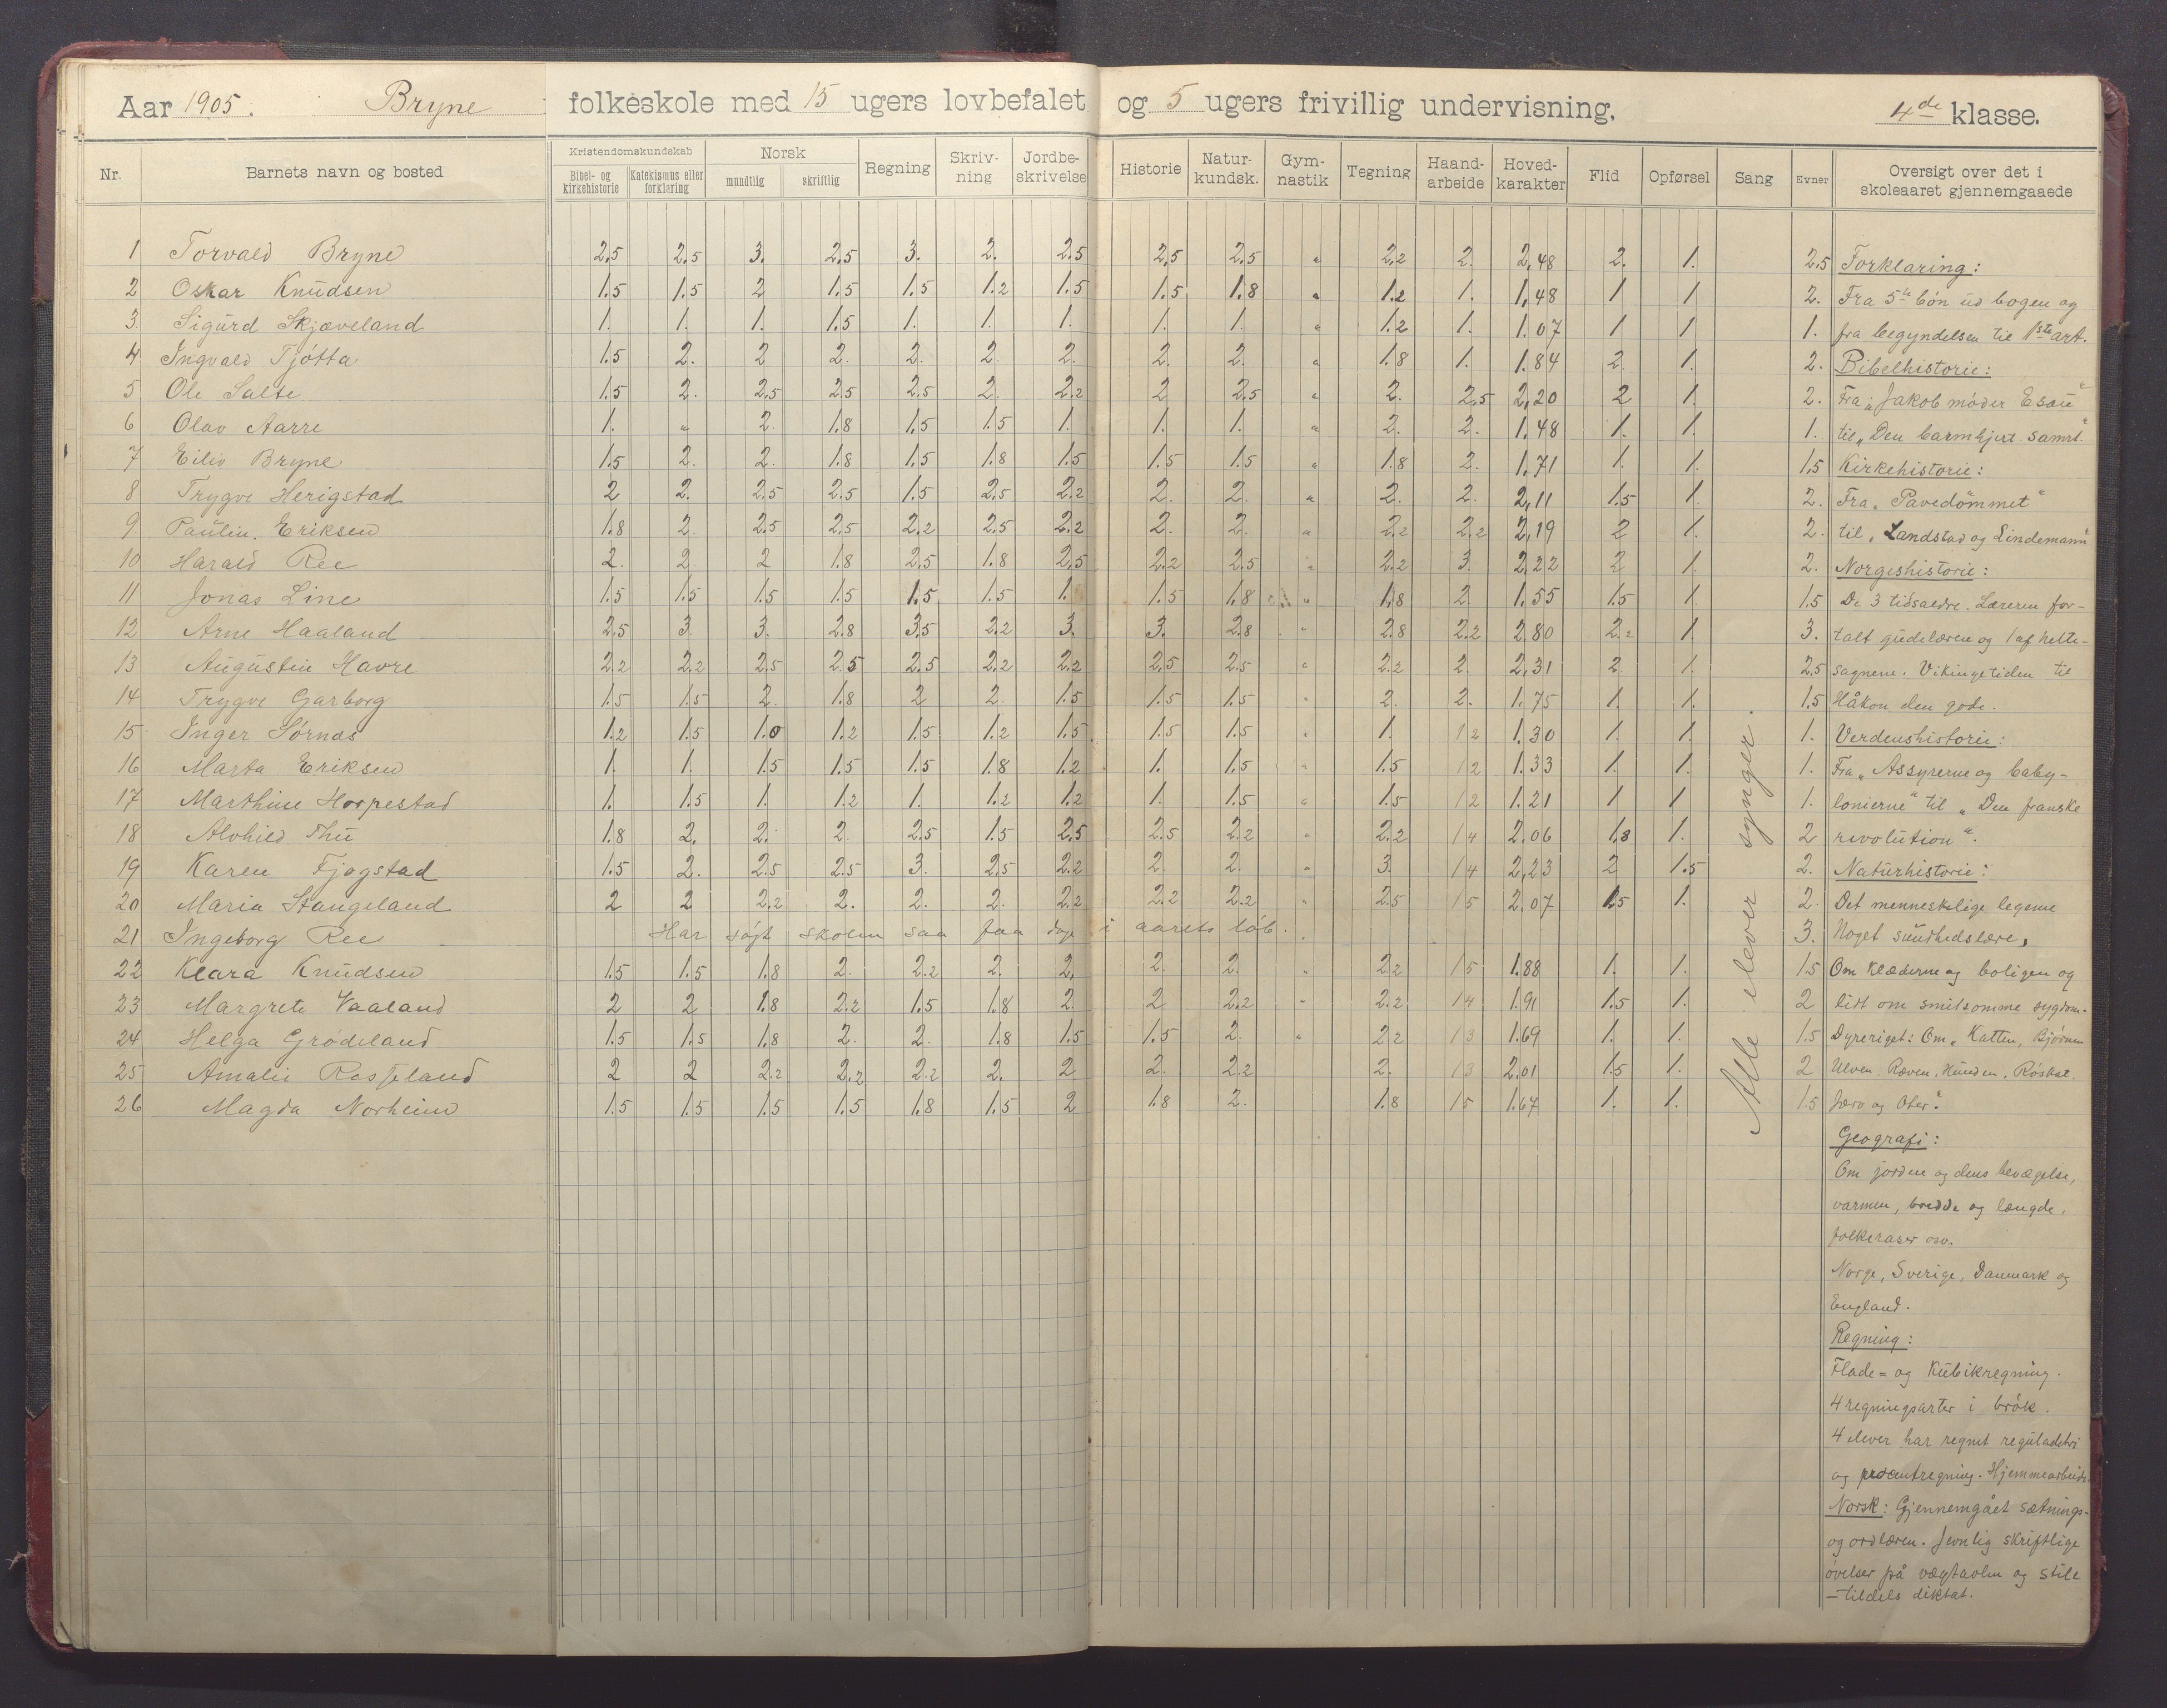 Aar 1905. Bryne folkeskole med 15 ugers lovbefalet og 5 ugers frivillig undervisning. 4de klasse.
Nr. Barnets navn og bosted Kristendomskundskab Bibel- og kirkehistorie Katekismus eller forklaring Norsk mundtlig skriftlig Regning Skriv-ning Jordbe-skrivelse Historie Natur-kundsk. Gym-nastik Tegning Haand-arbeide Hoved-karakter Flid Opførsel Sang Evner Oversigt over det i skoleaaret gjennemgaaede
1 Torvald Bryne 2.5 2.5 3. 2.5 3. 2. 2.5 2.5 2.5 " 2.2 2. 2,48 2. 1. 2.5 Forklaring:
2 Oskar Knudsen 1.5 1.5 2 1.5 1.5 1.2 1.5 1.5 1.8 " 1.2 1. 1,48 1 1 2. Fra 5te bön ud bogen og
3 Sigurd Skjæveland 1. 1. 1. 1.5 1. 1. 1. 1. 1. " 1.2 1. 1.07 1 1 1. fra begyndelsen til 1ste art.
4 Ingvald Tjótta 1.5 2. 2 2. 2. 2. 2. 2. 2. " 1.8 1. 1.84 2. 1. 2. Bibelhistorie:
5 Ole Salte 1.5 2. 2.5 2.5 2.5 2. 2.2 2 2.5 " 2. 2.5 2,20 2 1. 2. Fra „Jakob móder Esau"
6 Olav Aarre 1. " 2. 1.8 1.5 1.5 1. 1. 1. " 2. 2. 1.48 1. 1. 1. til „Den barmhjert. samrt."
7 Eiliv Bryne 1.5 2. 2. 1.8 1.5 1.8 1.5 1.5 1.5 " 1.8 2. 1.71 1. 1. 1.5 Kirkehistorie:
8 Trygve Herigstad 2 2. 2.5 2.5 1.5 2.5 2.2 2. 2. " 2. 2. 2,11 1.5 1. 2. Fra „Pavedömmet"
9 Paulin. Eriksen 1.8 2. 2.5 2.5 2.2 2.5 2.2 2. 2. " 2.2 2.2 2,19 2 1. 2. til „Landstad og Lindemann"
10 Harald Ree 2. 2. 2 1.8 2.5 1.8 2.5 2.2 2.5 " 2.2 3. 2,22 2 1. 2. Norgeshistorie:
11 Jonas Line 1.5 1.5 1.5 1.5 1.5 1.5 1. 1.5 1.8 " 1.8 2. 1.55 1.5 1. 1.5 De 3 tidsaldre. Læreren for-
12 Arne Haaland 2.5 3. 3. 2.8 3.5 2.2 3. 3. 2.8 " 2.8 2.2 2,80 2.2 1. 3. talt gudelæren og 1 af helte-
13 Augustin Havre 2.2 2.2 2.5 2.5 2.5 2.2 2.2 2.5 2.5 " 2.2 2. 2,31 2. 1. 2.5 sagnene. Vikingetiden til
14 Trygve Garborg 1.5 1.5 2. 1.8 2 2. 1.5 1.5 1.5 " 2. 2. 1.75 1. 1. 1.5 Håkon den gode.
15 Inger Sórnæs 1.2 1.5 1.0 1.2 1.5 1.2 1.5 1.5 1.5 " 1. 1 2 1.30 1. 1. 1. Verdenshistorie:
16 Marta Eriksen 1. 1. 1.5 1.5 1.5 1.8 1.2 1. 1.5 " 1.5 1 2 1.33 1. 1. 1. Fra „Assyrerne og baby-
17 Marthine Horpestad 1. 1.5 1. 1.2 1. 1.2 1.2 1. 1.5 " 1.5 1 2 1.21 1 1 1. lonierne" til „Den franske
18 Alvhild Thu 1.8 2. 2. 2. 2.5 1.5 2.5 2.5 2.2 " 2.2 1 4 2.06 1.8 1. 2 revolution".
19 Karen Fjogstad 1.5 2. 2.5 2.5 3. 2.5 2.2 2 2. " 3. 1 4 2,23 2 1.5 2. Naturhistorie:
20 Maria Stangeland 2 2 2.2 2. 2. 2. 2.2 2.2 2.2 " 2.5 1 5 2.07 1.5 1. 2. Det menneskelige legeme
21 Ingeborg Ree Har søgt skolen saa faa dage i aarets löb. 3. Noget sundhedslære,
22 Klara Knudsen 1.5 1.5 1.8 2. 2.2 2. 2. 2. 2. " 2.2 1 5 1.88 1. 1. 1.5 Om klæderne og boligen og
23 Margrete Vaaland 2 2 1.8 2.2 1.5 1.8 2. 2 2.2 " 2.2 1 4 1.91 1.5 1. 2 lidt om smitsomme sygdom.
24 Helga Grödeland 1.5 1.5 1.8 2. 2. 1.8 1.5 1.5 2. " 2.2 1 3 1.69 1. 1. 1.5 Dyreriget: Om „Katten, Bjórnen
25 Amalie Rosseland 2 2 2.2 2.2 2.2 2. 2 2. 2.2 2. 1 3 2.01 1.5 1. 2 Ulven. Ræven, Hunden, Róskat.
26 Magda Norheim 1.5 1.5 1.5 1.5 1.8 1.5 2 1.8 2. 1.8 1 5 1.67 1. 1. 1.5 Jærv og Oter".
Alle elever synger.
Geografi:
Om jorden og dens bevægelse,
varmen, bredde og længde,
folkeraser osv.
Norge, Sverige, Danmark og
England.
Regning:
Flade= og Kubikregning.
4 regningsarter i brök.
4 elever har regnet reguladetri
og procentregning. Hjemmearbeide.
Norsk: Gjennemgået sætnings-
og ordlæren. Jevnlig skriftlige
óvelser på vægtavlen og stile
— tildels diktat.